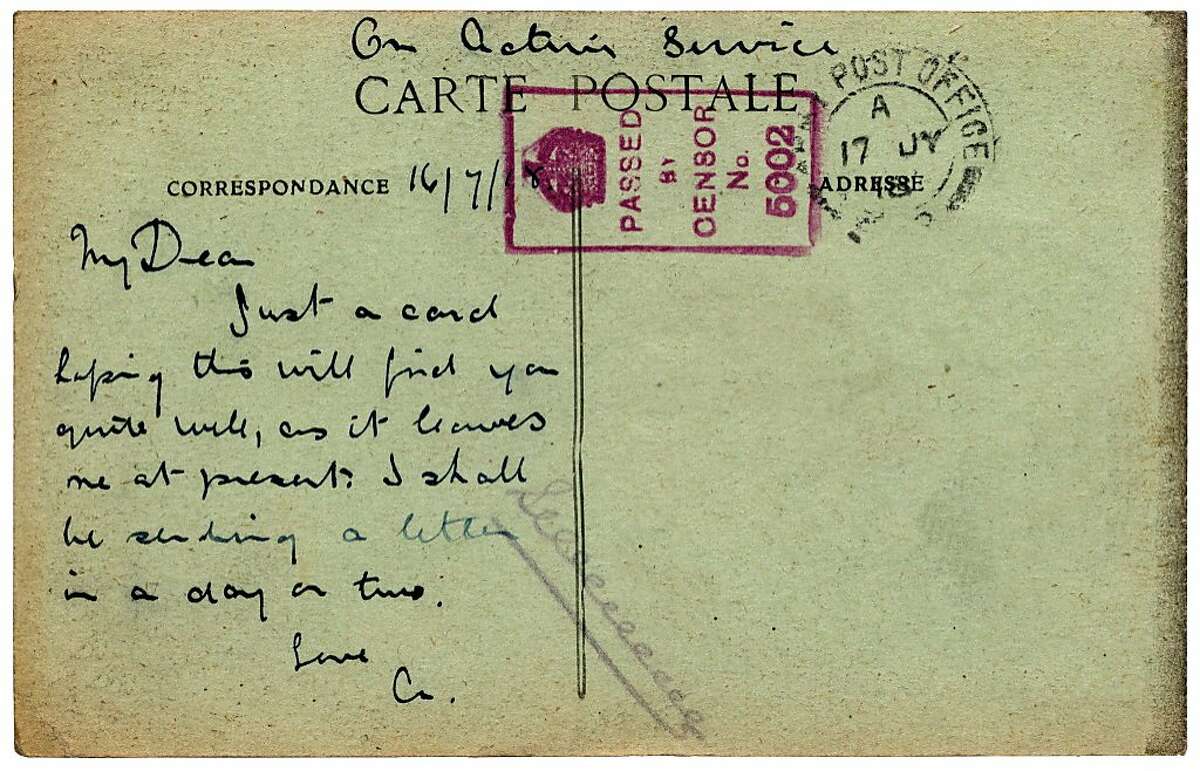 On Active Service
CARTE POSTALE
POST OFFICE
A
17 JY
18
PASSED
BY
CENSOR
No.
5002
CORRESPONDANCE 16/7/18
ADRESSE
My Dear
Just a card
hoping this will find you
quite well, as it leaves
me at present. I shall
be sending a letter
in a day or two.
Love